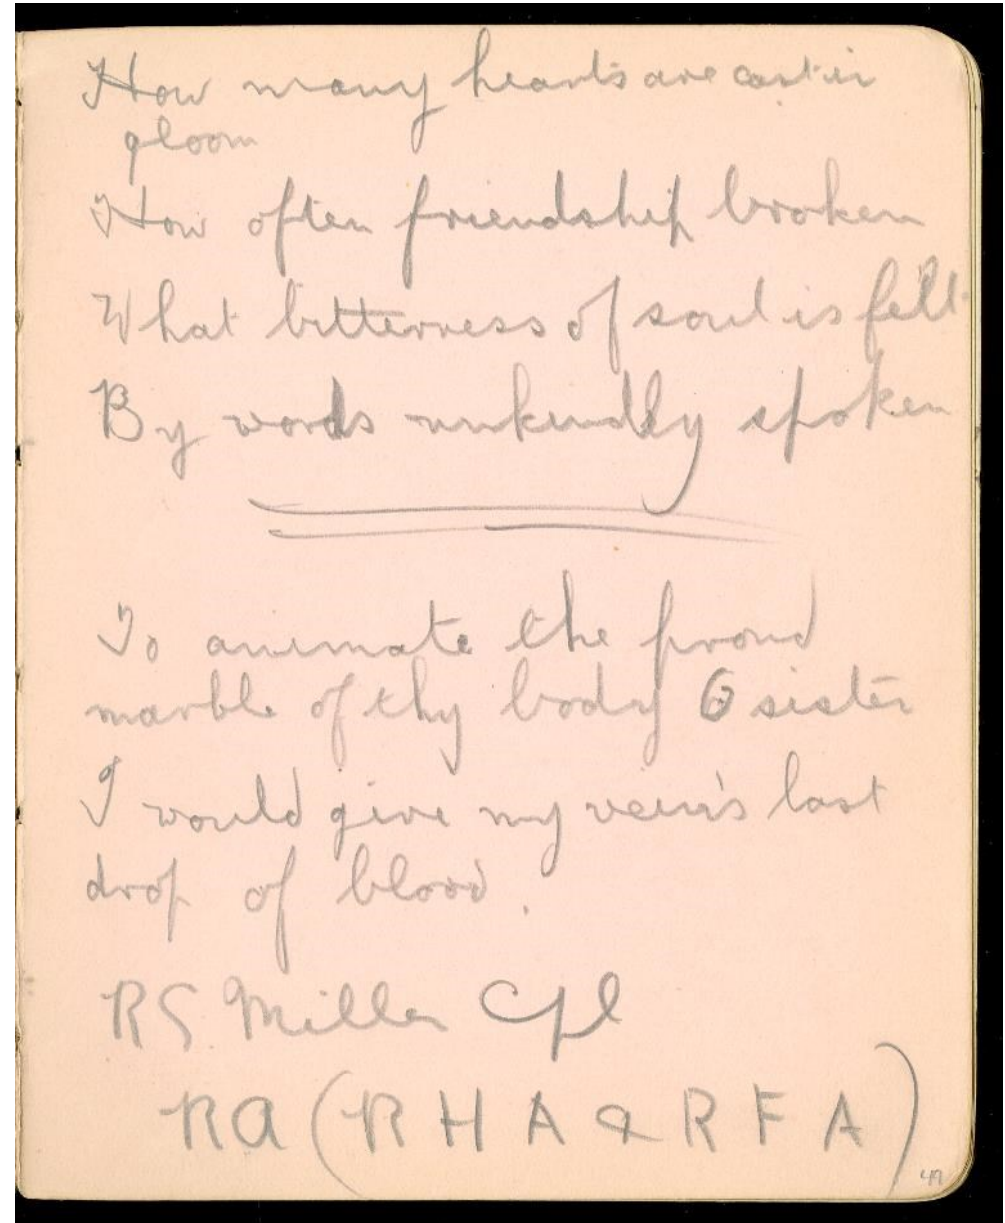 How many hearts are cast in
gloom
How often friendship broken
What bitterness of soul is felt
By words unkindly spoken
To animate the proud
marble of thy body O sister
I would give my vein's last
drop of blood.
RS Miller Cpl
RA (R H A & R F A)
49